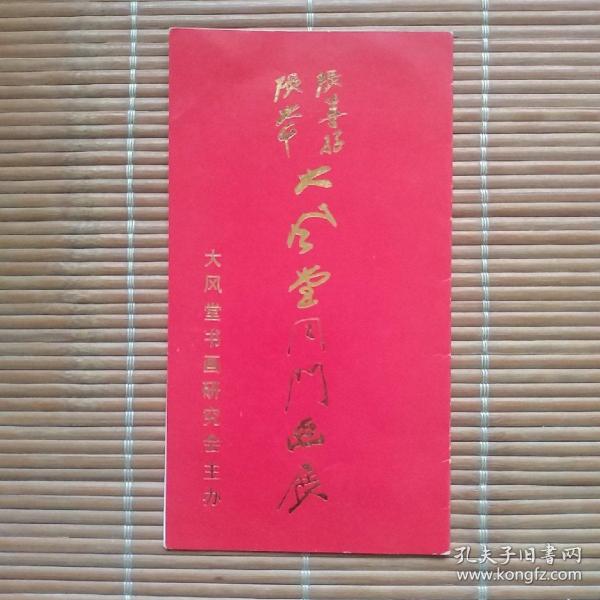 張善孖
張大千
大风堂同门画展
大风堂书画研究会主办
孔夫子旧書网
www.kongfz.com